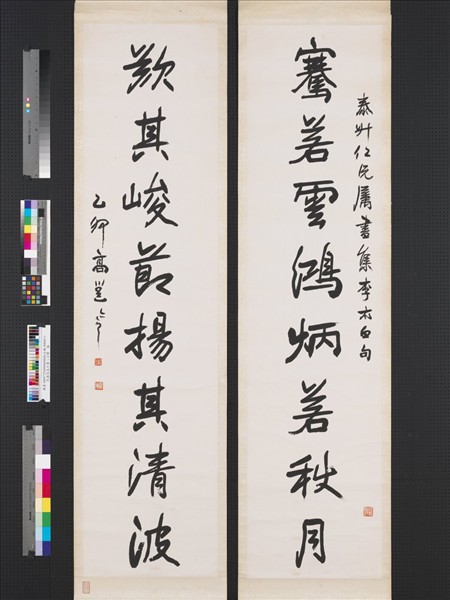 騫若雲鴻炳若秋月
泰州仁兄屬書集李太白句
歎其峻節揚其清波
乙卯高邕